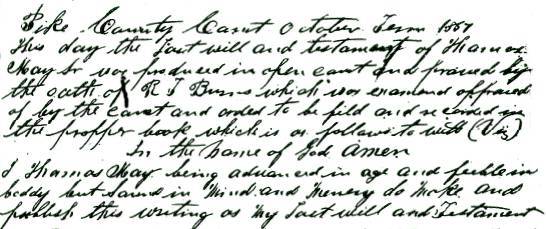 Pike County Court October Term 1867
This day the Last will and testament of Thomas
May Sr was produced in open court and proved by
the oath of R S Burns which was examond approved
of by the court and orded to be fild and recorded in
the propper book which is as follows to witt (Viz)
In the name of God Amen
I Thomas May being advanced in age and feeble in
boddy but sound in Mind and Memory do Make and
publish this writing as My Last will and Testament